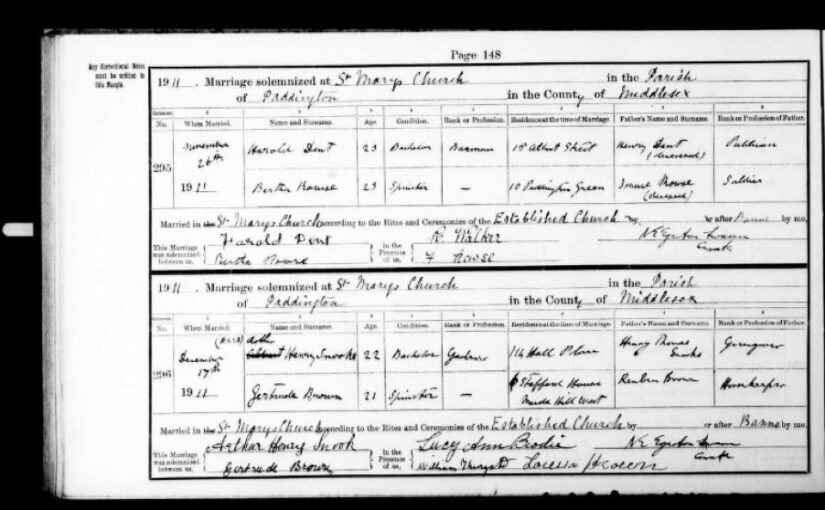 Page 148
Any Correctional Notes
must be written in
this Margin.
1911. Marriage solemnized at St Marys Church in the Parish
of Paddington in the County of Middlesex
No. When Married. Name and Surname. Age Condition. Rank or Profession. Residence at the time of Marriage. Father's Name and Surname. Rank or Profession of Father.
295 November 26th Harold Dent 23 Bachelor Barman 15 Albert Street Henry Dent (deceased) Publican
1911 Bertha Rowse 23 Spinster — 10 Paddington Green Rowse (deceased) Soldier
Married in the St Marys Church according to the Rites and Ceremonies of the Established Church by, or after Banns by me,
This Marriage was solemnized between us, Harold Dent Bertha Rowse in the Presence of us, R. Walker F Rowse
1911. Marriage solemnized at St Marys Church in the Parish
of Paddington in the County of Middlesex
No. When Married. Name and Surname. Age Condition. Rank or Profession. Residence at the time of Marriage. Father's Name and Surname. Rank or Profession of Father.
296 December 17th Henry Snooks 22 Bachelor Gardener 114 Hall Place Henry Thomas Snooks Greengrocer
1911 Gertrude Brown 21 Spinster — 6 Stafford House Maida Hill West Reuben Brown
Married in the St Marys Church according to the Rites and Ceremonies of the Established Church by or after Banns by me,
This Marriage was solemnized between us, Arthur Henry Snook Gertrude Brown in the Presence of us, Lucy Ann Brodie William Louisa Brown